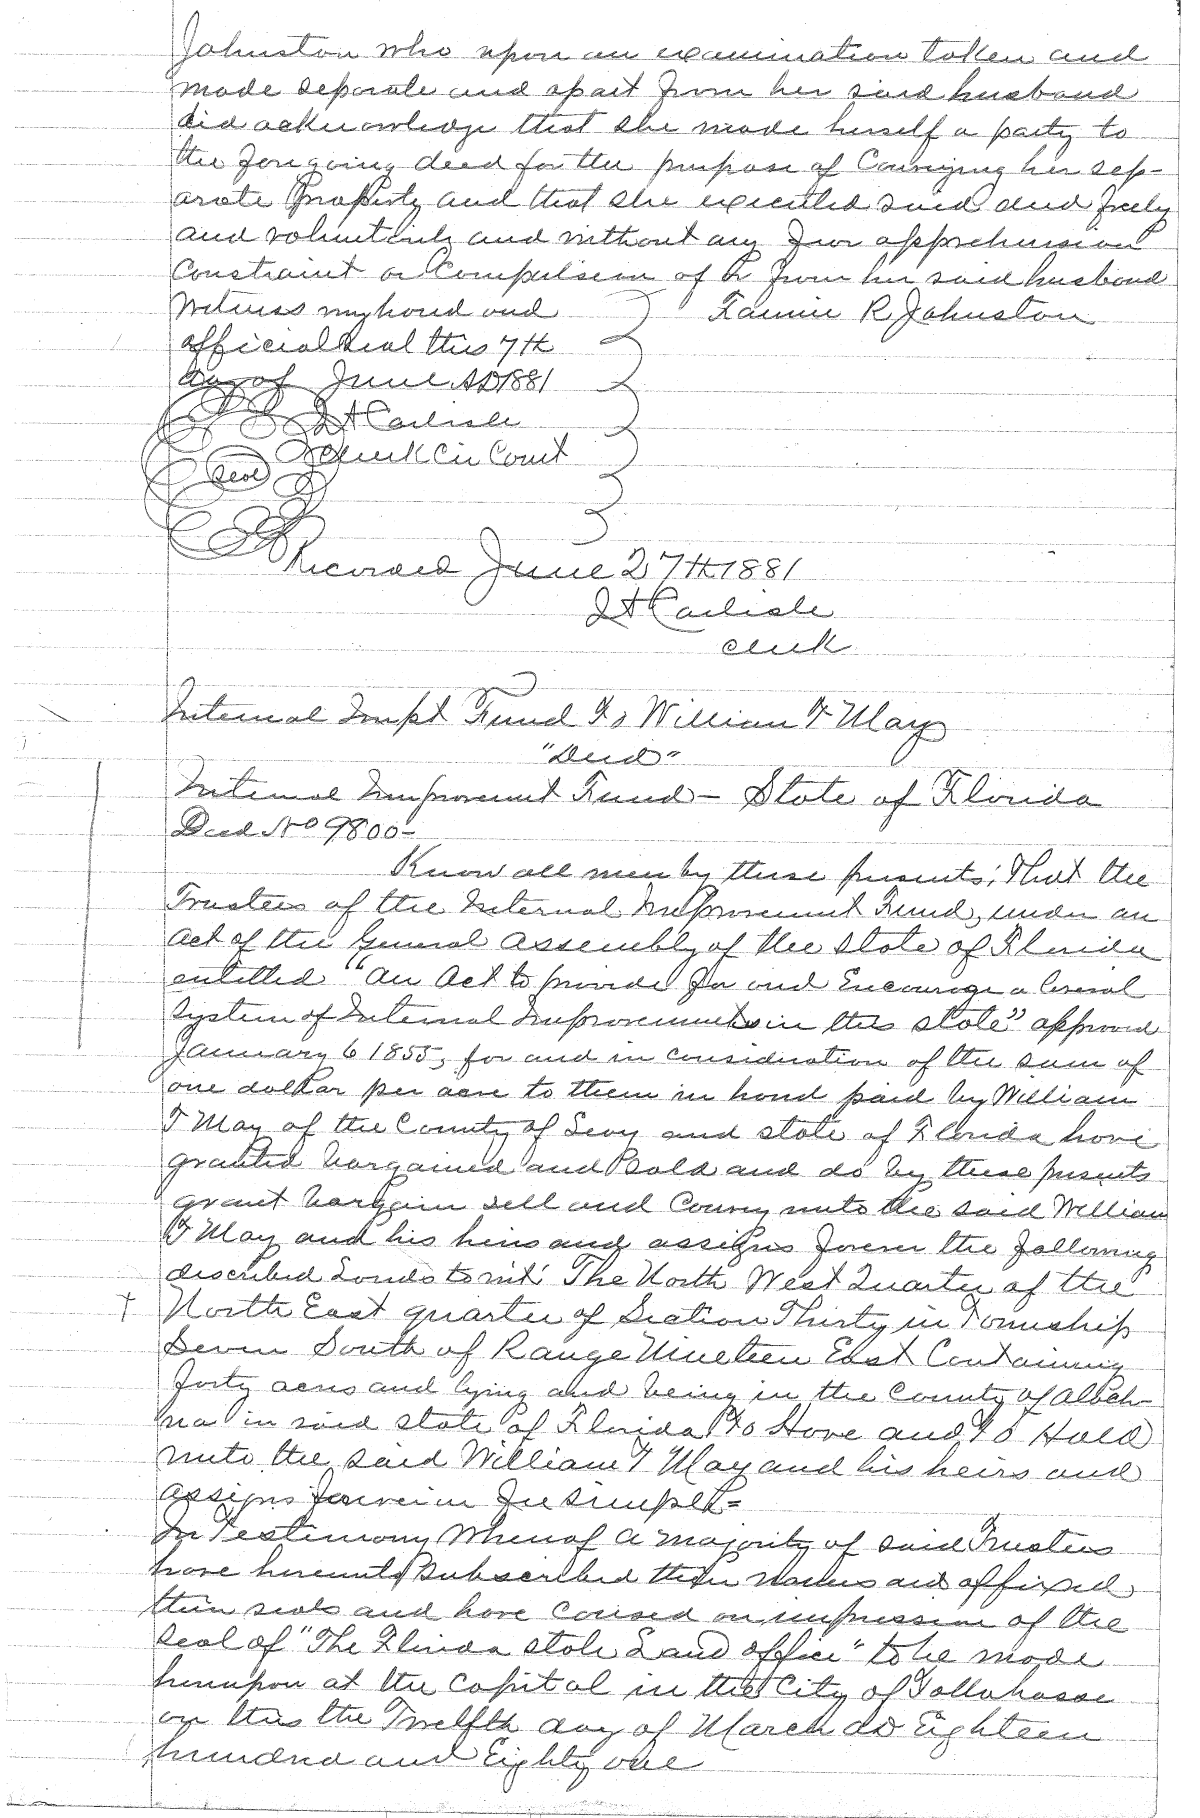 Johnston who upon an examination taken and
made separate and apart from her said husband
did acknowledge that she made herself a party to
the foregoing deed for the purpose of Conveying her sep-
arate Property and that she executed said deed freely
and voluntarily and without any fear apprehension
Constraint or Compulsion of or from her said husband
Witness my hand and Fannie R Johnston
official seal this 7th
day of June AD 1881
J A Carlisle
Clerk Cir Court
Seal
Recorded June 27th 1881
J A Carlisle
clerk
Internal Impt Fund To William F May
"Deed"
Internal Improvement Fund - State of Florida
Deed No 9800-
Know all men by these presents; That the
Trustees of the Internal Improvement Fund, under an
act of the General Assembly of the State of Florida
entitled "An Act to provide for and Encourage a liberal
System of Internal Improvements in this state" approved
January 6 1855, for and in consideration of the sum of
one dollar per acre to them in hand paid by William
F May of the County of Levy and state of Florida have
granted bargained and Sold and do by these presents
grant bargain sell and Convey unto the said William
F May and his heirs and assigns forever the following
described Lands to wit: The North West Quarter of the
North East quarter of Section Thirty in Township
Seven South of Range Nineteen East Containing
forty acres and lying and being in the County of Alach-
ua in said state of Florida To Have and To Hold
unto the said William F May and his heirs and
assigns forever in fee simple=
In Testimony Whereof a majority of said Trustees
have hereunto Subscribed their names and affixed
their seals and have caused an impression of the
Seal of "The Florida state Land office" to be made
hereupon at the Capital in the City of Tallahassee
on this the Twelfth day of March AD Eighteen
hundred and Eighty one